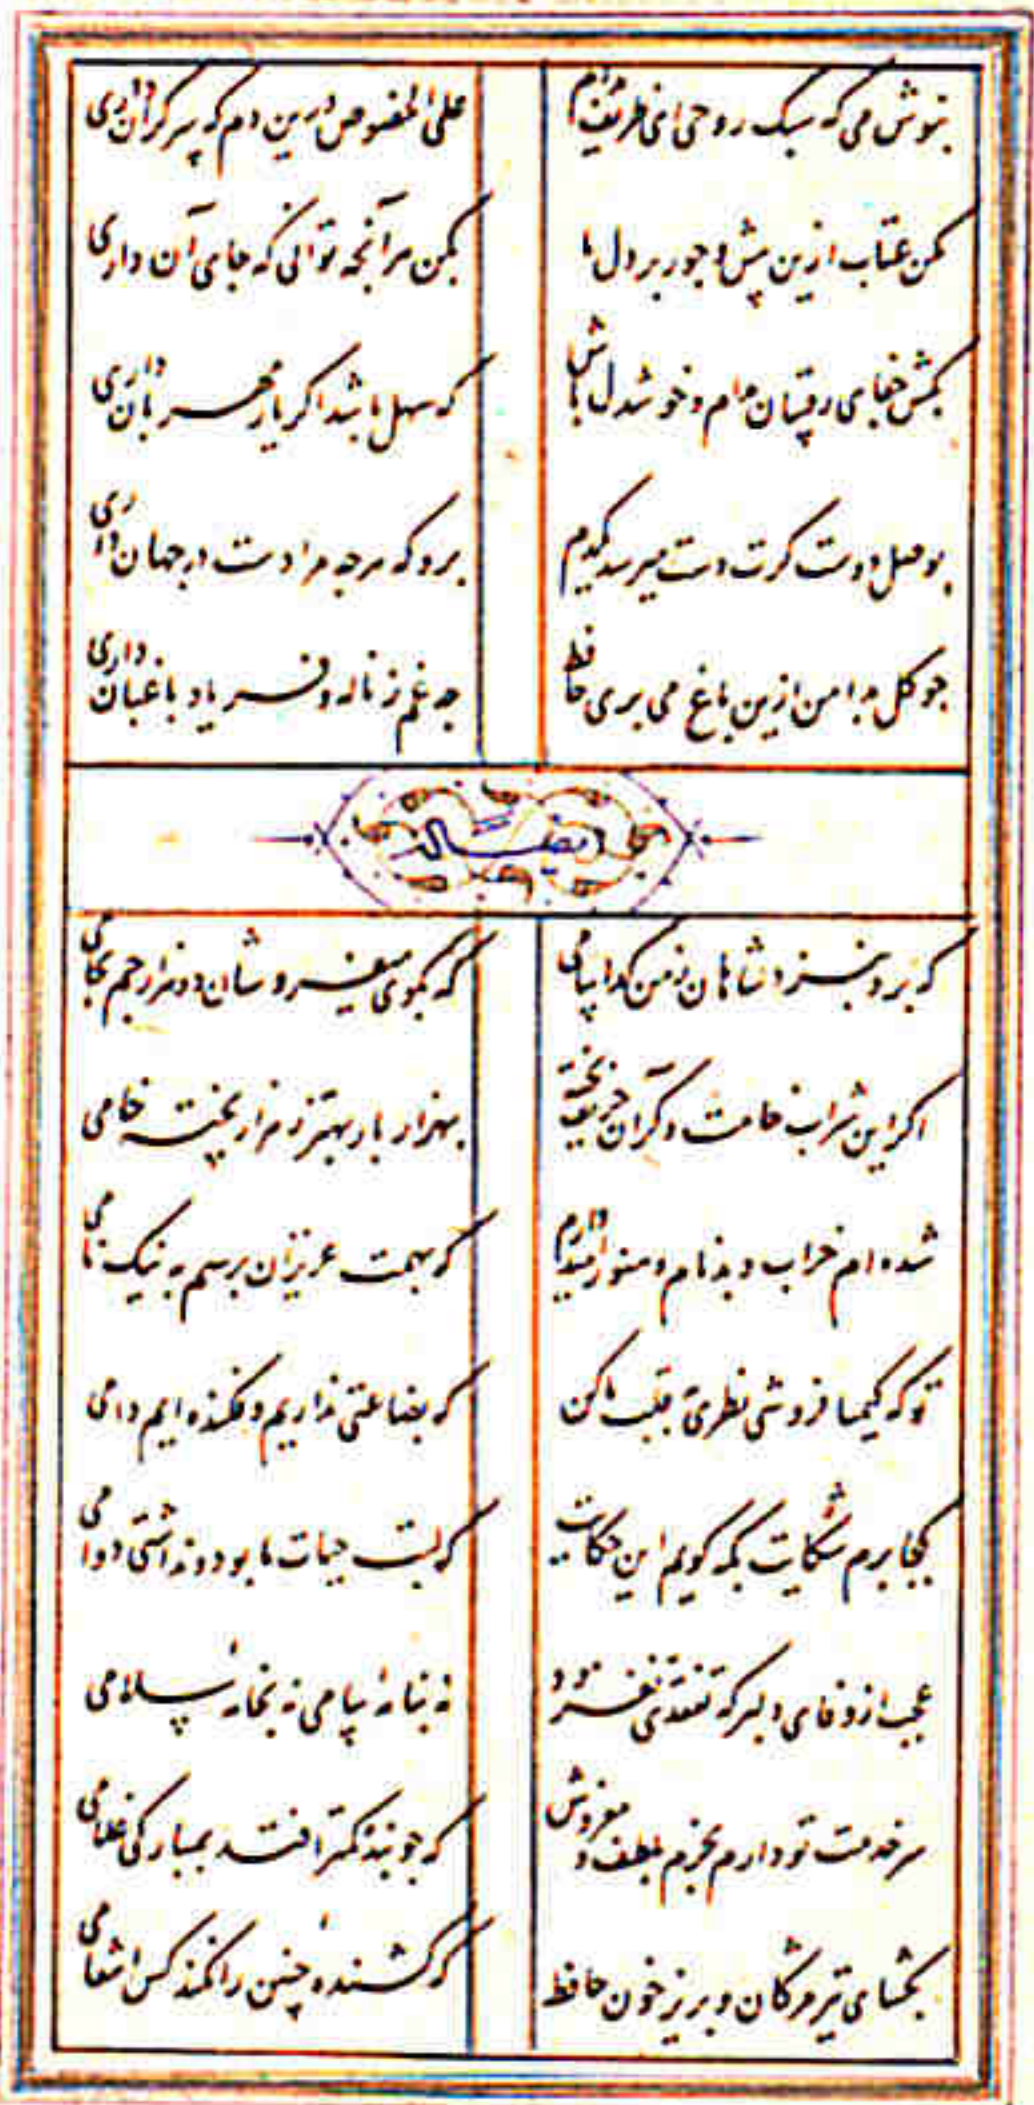 بنوش می که سبک روحی ای ظریف مدام علی الخصوص درین دم که سر کران داری
مکن عتاب ازین بیش و جور بر دل ما بکن هرآنچه توانی که جای آن داری
بکش جفای رقیبان مدام و خوشدل باش که سهل باشد اکر یار مهربان داری
بوصل دوست کرت دست میرسد یکدم برو که هرچه مرادست در جهان داری
چو کل بدامن ازین باغ می بری حافظ چه غم ز ناله و فریاد باغبان داری
وله ایضا
که برد بنزد شاهان ز من کدا پیامی که بکوی میفروشان دو هزار جم بجامی
اکر این شراب خامست وکر آن حریف پخته بهزار بار بهتر ز هزار پخته خامی
شده ام خراب و بدنام و هنوز امیدوارم که بهمت عزیزان برسم به نیک نامی
تو که کیمیا فروشی نظری بقلب ما کن که بضاعتی نداریم و فکنده ایم دامی
بکجا برم شکایت بکه کویم این حکایت که لبت حیات ما بود و نداشتی دوامی
عجب از وفای دلبر که تفقدی نفرمود نه بنامهٔ پیامی نه بخامهٔ سلامی
سر خدمت تو دارم بخرم بلطف و مفروش که چو بنده کمتر افتد بمبارکی غلامی
بکشای تیر مژکان و بریز خون حافظ که کشنده چنین را نکند کس انتقامی